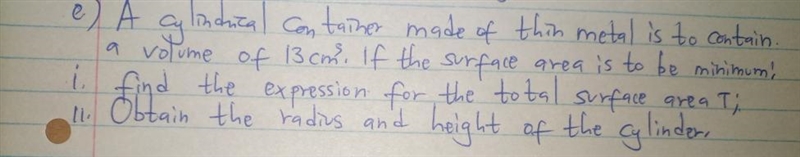 e) A cylindrical container made of thin metal is to contain.
a volume of 13cm³. If the surface area is to be minimum;
i. find the expression for the total surface area T;
11. Obtain the radius and height of the cylinder.